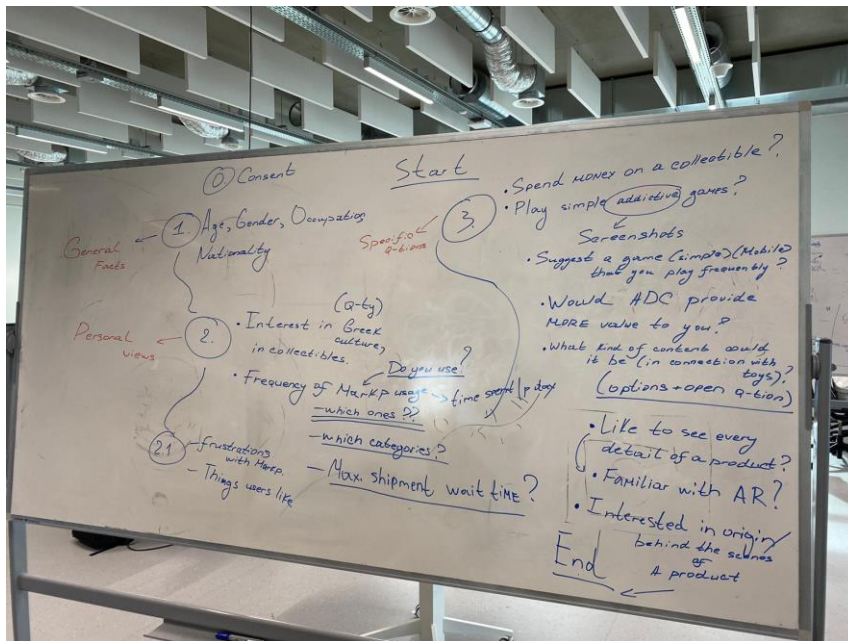 0 Consent
Start
1. Age, Gender, Occupation,
Nationality
General
Facts
2.
Personal
views
(Q-ty)
• Interest in Greek
culture,
in collectibles.
Do you use?
• Frequency of MarkP usage → time spent | p day
- which ones??
- which categories?
- Max. shipment wait time?
2.1 - frustrations
with Markp.
- Things users like
3.
Specific
Q-tions
• Spend money on a collectible?
• Play simple addictive games?
Screenshots
• Suggest a game (simple) (Mobile)
that you play frequently?
• Would ADC provide
MORE value to you?
• What kind of content could
it be (in connection with
toys)?
(options + open Q-tion)
• Like to see every
detail of a product?
• Familiar with AR?
• Interested in origin/
behind the scenes
of
a product
End